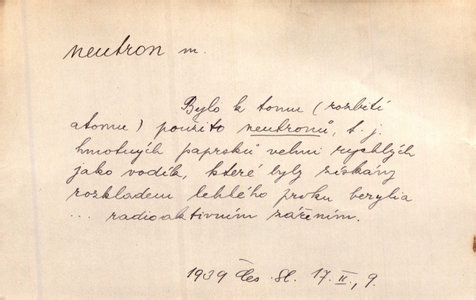 neutron m.
Bylo k tomu (rozbití
atomu) použito neutronů, t. j.
hmotných paprsků velmi rychlých
jako vodík, které byly získány
rozkladem lehlého prvku berylia
... radioaktivním zářením.
1939 Čes. sl. 17. II., 9.